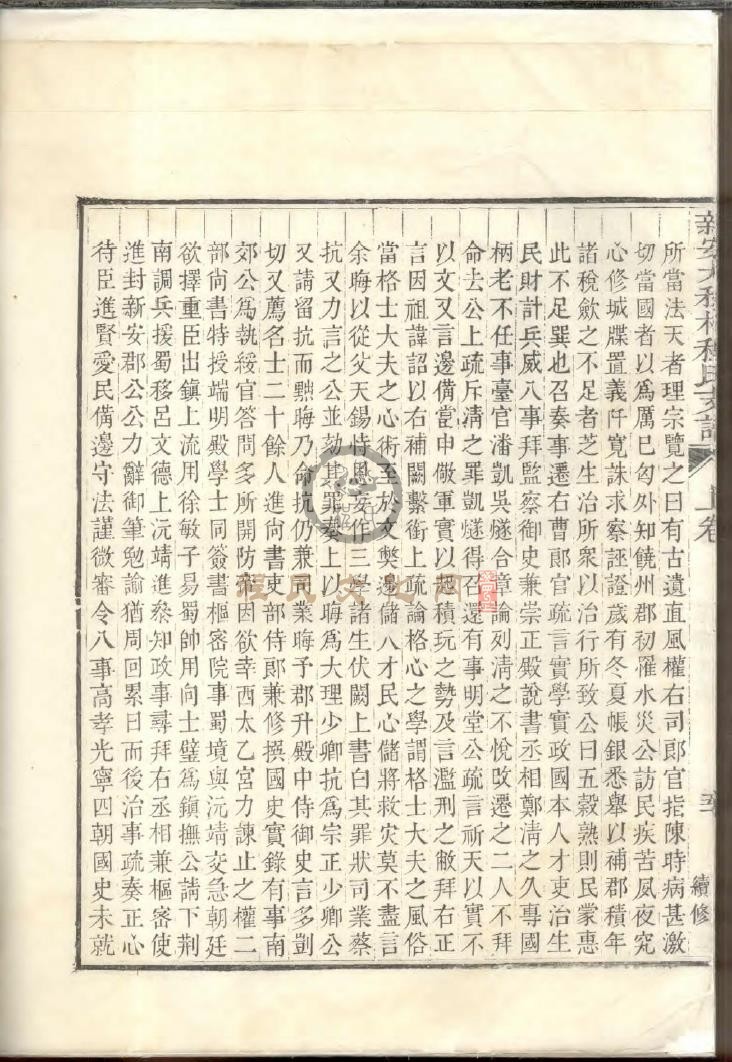 新安大程村程氏支譜
上卷
續修
所當法天者理宗覽之曰有古遺直風權右司郎官指陳時病甚激
切當國者以爲厲巳匄外知饒州郡初罹水災公訪民疾苦夙夜究
心修城牒置義阡寬誅求察誣證歲有冬夏帳銀悉舉以補郡積年
諸稅斂之不足者芝生治所衆以治行所致公曰五穀熟則民蒙惠
此不足異也召奏事遷右曹郎官疏言實學實政國本人才吏治生
民財計兵威八事拜監察御史兼崇正殿說書丞相鄭清之久專國
柄老不任事臺官潘凱吳燧合章論列清之不悅攺遷之二人不拜
命去公上疏斥清之罪凱燧得召還有事明堂公疏言祈天以實不
以文又言邊備當申儆軍實以起積玩之勢及言濫刑之敝拜右正
言因祖諱詔以右補闕繫銜上疏論格心之學謂格士大夫之風俗
當格士大夫之心術至於文獘邊儲人才民心儲將救灾莫不盡言
余晦以從父天錫恃恩妄作三學諸生伏闕上書白其罪狀司業蔡
抗又力言之公並劾其罪奏上以晦爲大理少卿抗爲宗正少卿公
又請留抗而黜晦乃命抗仍兼司業晦予郡升殿中侍御史言多剴
切又薦名士二十餘人進尙書吏部侍郎兼修撰國史實錄有事南
郊公爲執綏官答問多所開防帝因欲幸西太乙宮力諫止之權二
部尙書特授端明殿學士同簽書樞密院事蜀境與沅靖交急朝廷
欲擇重臣出鎭上流用徐敏子易蜀帥用向士璧爲鎭撫公請下荆
南調兵援蜀移呂文德上沅靖進叅知政事尋拜右丞相兼樞密使
進封新安郡公公力辭御筆勉諭猶周回累日而後治事疏奏正心
待臣進賢愛民備邊守法謹微審令八事高孝光寧四朝國史未就